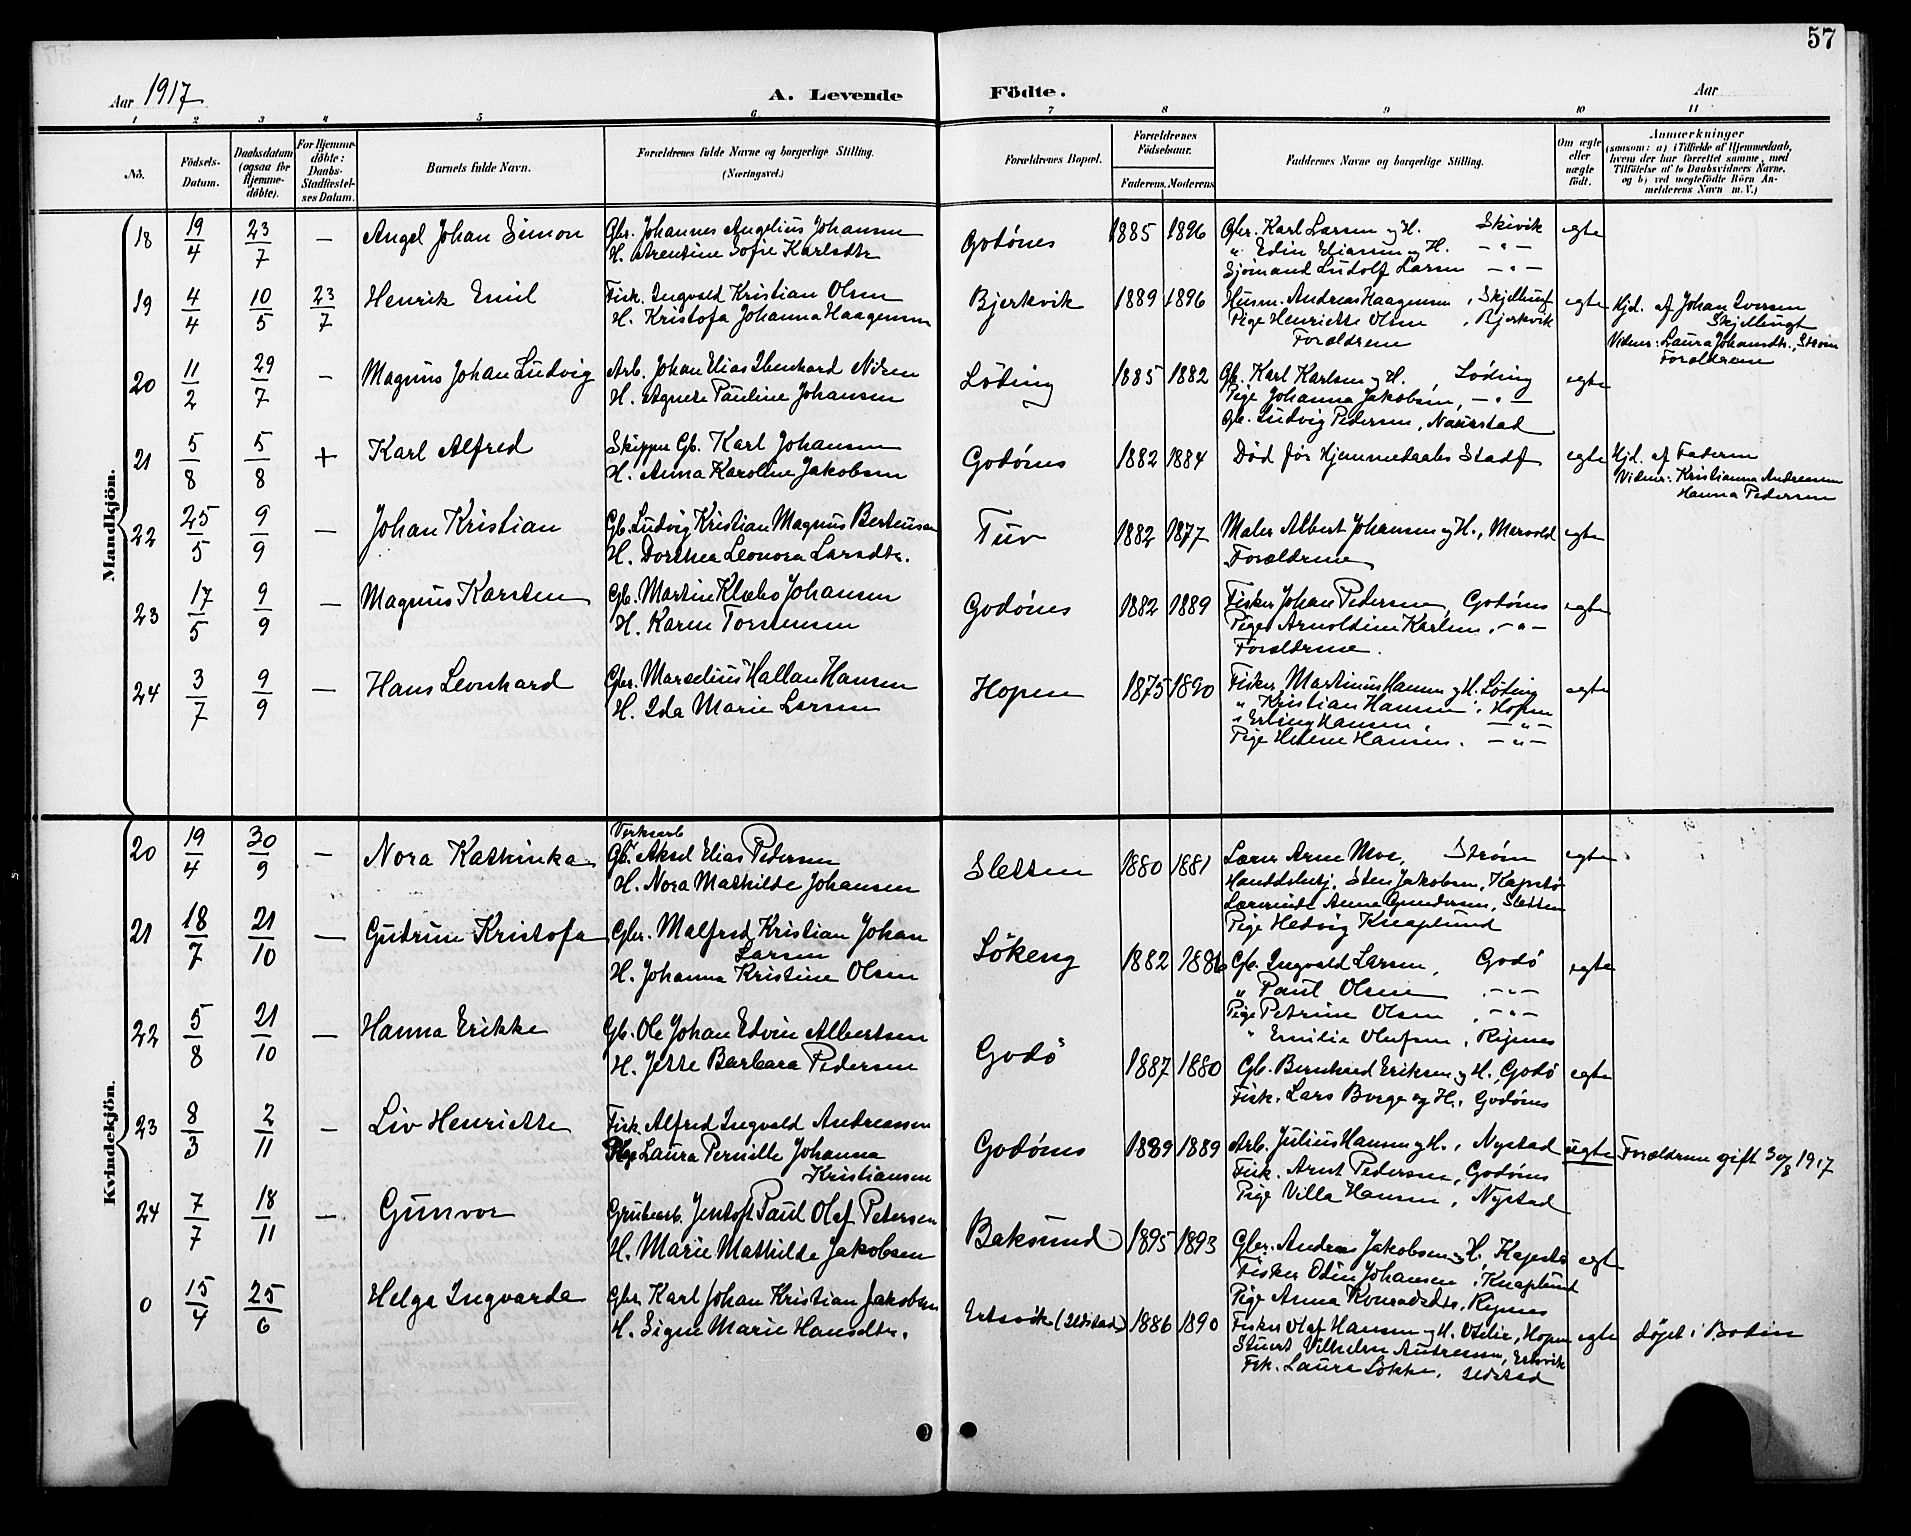 57
Aar 1917
A. Levende Födte.
Aar
1 2 3 4 5 6 7 8 9 10 11
No.
Födsels-Datum.
Daabsdatum (ogsaa for Hjemme-döbte).
For Hjemme-döbte: Daabs-Stadfæstel-ses Datum.
Barnets fulde Navn.
Forældrenes fulde Navne og borgerlige Stilling.
(Næringsvei.)
Forældrenes Bopæl.
Forældrenes Födselsaar.
Faderens. Moderens.
Faddernes Navne og borgerlige Stilling.
Om ægte eller uægte födt.
Anmærkninger
(saasom: a) i Tilfælde af Hjemmedaab,
hvem der har forrettet samme, med
Tilföielse af to Daabsvidners Navne,
og b) ved uægtefödte Börn An-
melderens Navn m. V.)
Mandkjön.
18 19/4 23/7 — Angel Johan Simon
Gbr. Johannes Angelius Johansen
H. Arentine Sofie Karlsdtr
Godönes 1885 1896
Gbr. Karl Larsen og H. Skivik
" Edin Eliassen og H. — " —
Sjömand Ludolf Larsen — " —
egte
19 4/4 10/5 23/7 Henrik Emil
Fisk. Ingvald Kristian Olsen
H. Kristofa Johanna Haagensen
Bjerkvik 1889 1896
Husm. Andreas Haagensen, Skjellungt
Pige Henriette Olsen, Bjerkvik
Forældrene
egte
Hjd. af Johan Iversen
Skjellungt
Vidner: Laura Johansdtr., Strøm
Forældrene
20 11/2 29/7 — Magnus Johan Ludvig
Arb. Johan Elias Ebenhard Nilsen
H. Agnete Pauline Johansen
Löding 1885 1882
Gb. Karl Karlsen og H., Löding
Pige Johanna Jakobsen, — " —
Gb. Ludvig Pedersen, Naurstad
egte
21 5/8 5/8 + Karl Alfred
Skipper Gb. Karl Johansen
H. Anna Karoline Jakobsen
Godönes 1882 1884
Död før Hjemmedaabs Stadf
egte
Hjd. af Faderen
Vidner: Kristianna Andreassen
Hanna Pedersen
22 25/5 9/9 — Johan Kristian
Gb. Ludvig Kristian Magnus Berteussen
H. Dorthea Leonora Larsdtr.
Tuv 1882 1877
Maler Albert Johansen og H., Mørvold
Forældrene
egte
23 17/5 9/9 — Magnus Karsten
Gb. Martin Klæbo Johansen
H. Karen Torstensen
Godönes 1882 1889
Fisker Johan Pedersen, Godönes
Pige Arnoldine Karlsen, — " —
Forældrene.
egte
24 3/7 9/9 — Hans Leonhard
Gbr. Marselius Hallan Hansen
H. Ida Marie Larsen
Hopen 1875 1890
Fisker Martinus Hansen og H. Löding
" Kristian Hansen, Hopen
" Erling Hansen, — " —
Pige Helene Hansen. — " —
egte
Kvindekjön.
20 19/4 30/9 — Nora Kathinka
Verksarb
Gb. Aksel Elias Pedersen
H. Nora Mathilde Johansen
Sletten 1880 1881
Lærer Arne Moe, Strøm
Handelsbetj. Sten Jakobsen, Kapstö
Lærerinde Anna Gundersen, Sletten
Pige Hedvig Knaplund
egte
21 18/7 21/10 — Gudrun Kristofa
Gbr. Malfred Kristian Johan
Larsen
H. Johanna Kristine Olsen
Lökeng 1882 1886
Gb. Ingvald Larsen, Godö
" Paul Olsen — " —
Pige Petrine Olsen, — " —
" Emilie Olufsen, Ripnes
egte
22 5/8 21/10 — Hanna Erikke
Gb. Ole Johan Edvin Albertsen
H. Jette Barbara Pedersen
Godö 1887 1880
Gb. Bernhard Eriksen og H., Godö
Fisk. Lars Borge og H., Godönes
egte
23 8/3 2/11 — Liv Henriette
Fisk. Alfred Ingvald Andreassen
Pige Laura Pernille Johanna
Kristiansen
Godönes 1889 1889
Arb. Julius Hansen og H., Nystad
Fisk. Arnt Pedersen, Godönes
Pige Villa Hansen, Nystad
uegte
Forældrene gift 30/8 1917
24 7/7 18/11 — Gunvor
Grubearb. Jentoft Paul Olaf Petersen
H. Marie Mathilde Jakobsen
Baksund 1895 1893
Gbr. Andreas Jakobsen og H, Kapstö
Fisker Odin Johansen, Knaplund
Pige Anna Konradsdtr., Ripnes
egte
0 15/4 25/6 Helga Ingvarda
Gbr. Karl Johan Kristian Jakobsen
H. Signe Marie Hansdtr.
Ertsvik (Seldstad) 1886 1890
Fisker Olaf Hansen og H. Otelie, Hopen
Stuert Vilhelm Andreassen, Ertsvik
Fisk. Laura Løkke, Seldstad
egte
døpt i Bodin